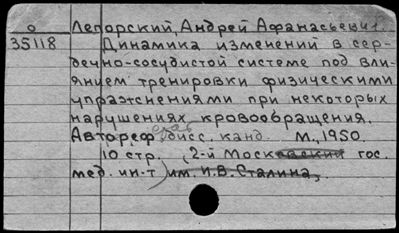 о Лепорский, Андрей Афанасьевич.
35118 Динамика изменений в сер-
дечно-сосудистой системе под вли-
янием тренировки физическими
упражнениями при некоторых
нарушениях кровообращения.
Автореф дисс. канд. М., 1950.
10 стр. (2-й Московский гос.
мед. ин-т) им. И.В. Сталина,